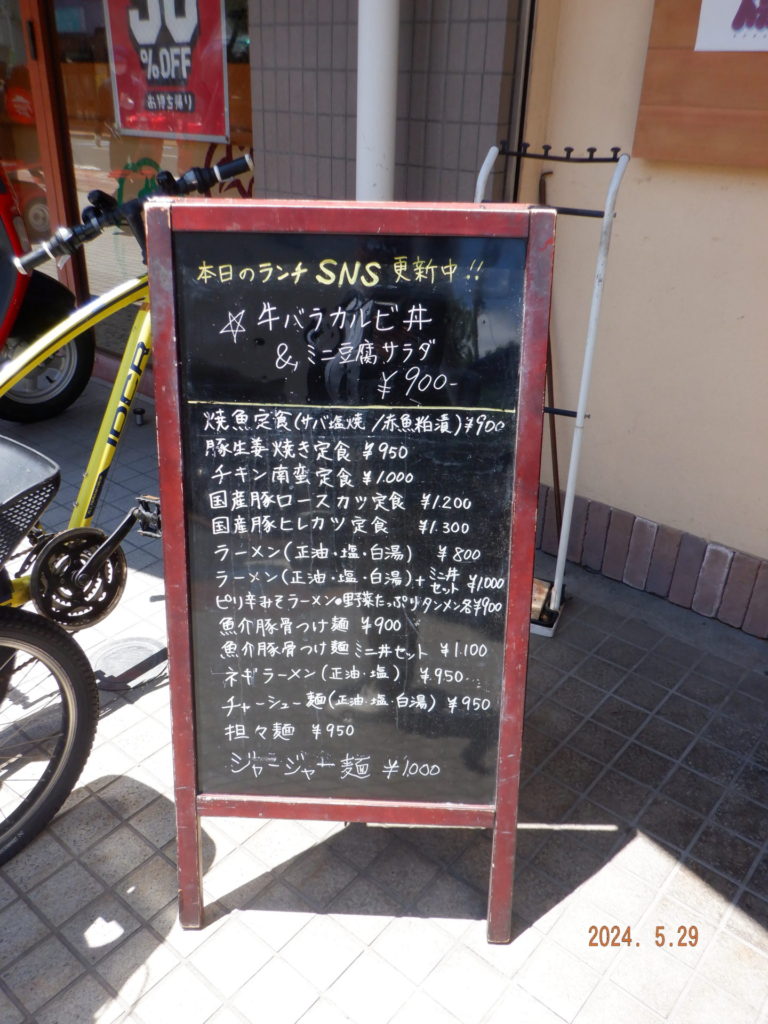 %OFF
お持ち帰り
本日のランチ SNS 更新中!!
☆ 牛バラカルビ丼
& ミニ豆腐サラダ
¥900-
焼魚定食(サバ塩焼/赤魚粕漬)¥900
豚生姜焼き定食 ¥950
チキン南蛮定食 ¥1.000
国産豚ロースカツ定食 ¥1.200
国産豚ヒレカツ定食 ¥1.300
ラーメン(正油・塩・白湯) ¥800
ラーメン(正油・塩・白湯)+ミニ丼セット ¥1.000
ピリ辛みそラーメン・野菜たっぷりタンメン各¥900
魚介豚骨つけ麺 ¥900
魚介豚骨つけ麺 ミニ丼セット ¥1.100
ネギラーメン(正油・塩) ¥950
チャーシュー麺(正油・塩・白湯) ¥950
担々麺 ¥950
ジャージャー麺 ¥1.000
2024. 5.29